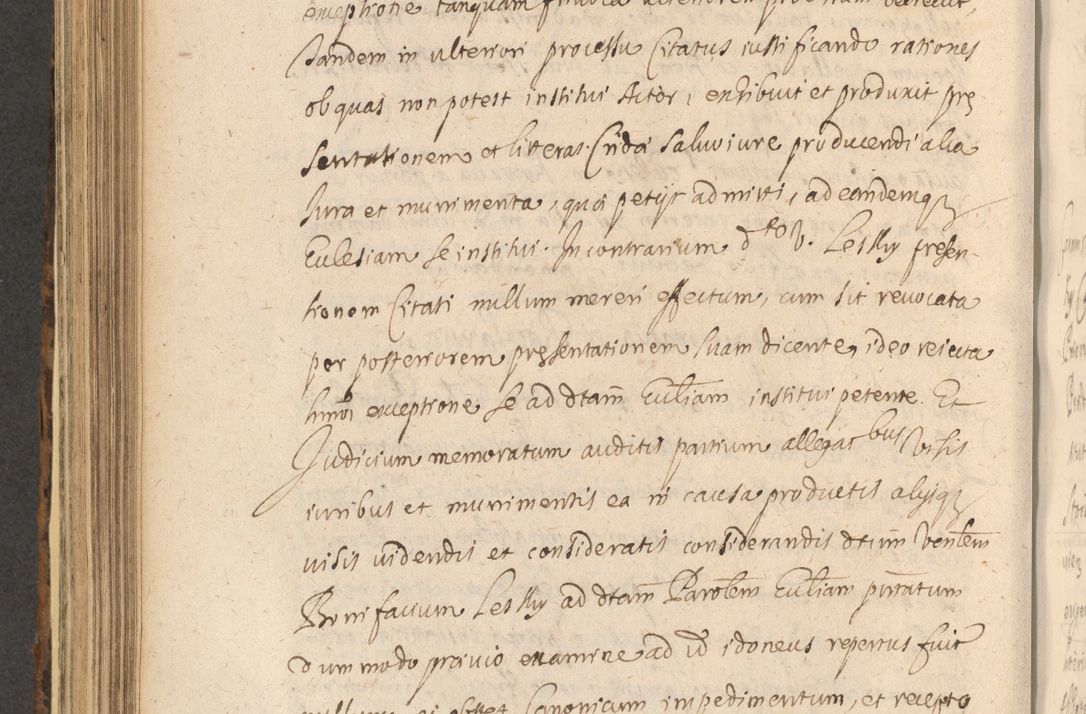 exceptione tanquam frivola ulteriorem processum decrevit,
Tandem in ulteriori processu Citatus iustificando rationes
ob quas non potest institui Actor, exhibuit et produxit prę
sentationem et litteras Cridæ salvo iure producendi alia
Iura et munimenta, quæ petijt admitti, ad eandemqȝ
Ecclesiam se institui. In contrarium d^to V. Lesky presen-
tionem Citati nullum mereri effectum, cum sit revocata
per posteriorem pręsentationem suam dicente, ideo reiecta
hmōi exceptione se ad dtam̄ Eccl̄iam institui petente. Et
Iudicium memoratum auditis partium allegac^bus visis
iuribus et munimentis ea in causa productis alijsqȝ
visis videndis et consideratis considerandis dtum̄ Venl̄em
Bonifacium Lesky ad dtam̄ Parol̄em Eccl̄iam pnt̄atum
dummodo prævio examine ad id̄ idoneus repertus fuit̄
obstet Canonicum impedimentum, et recepto